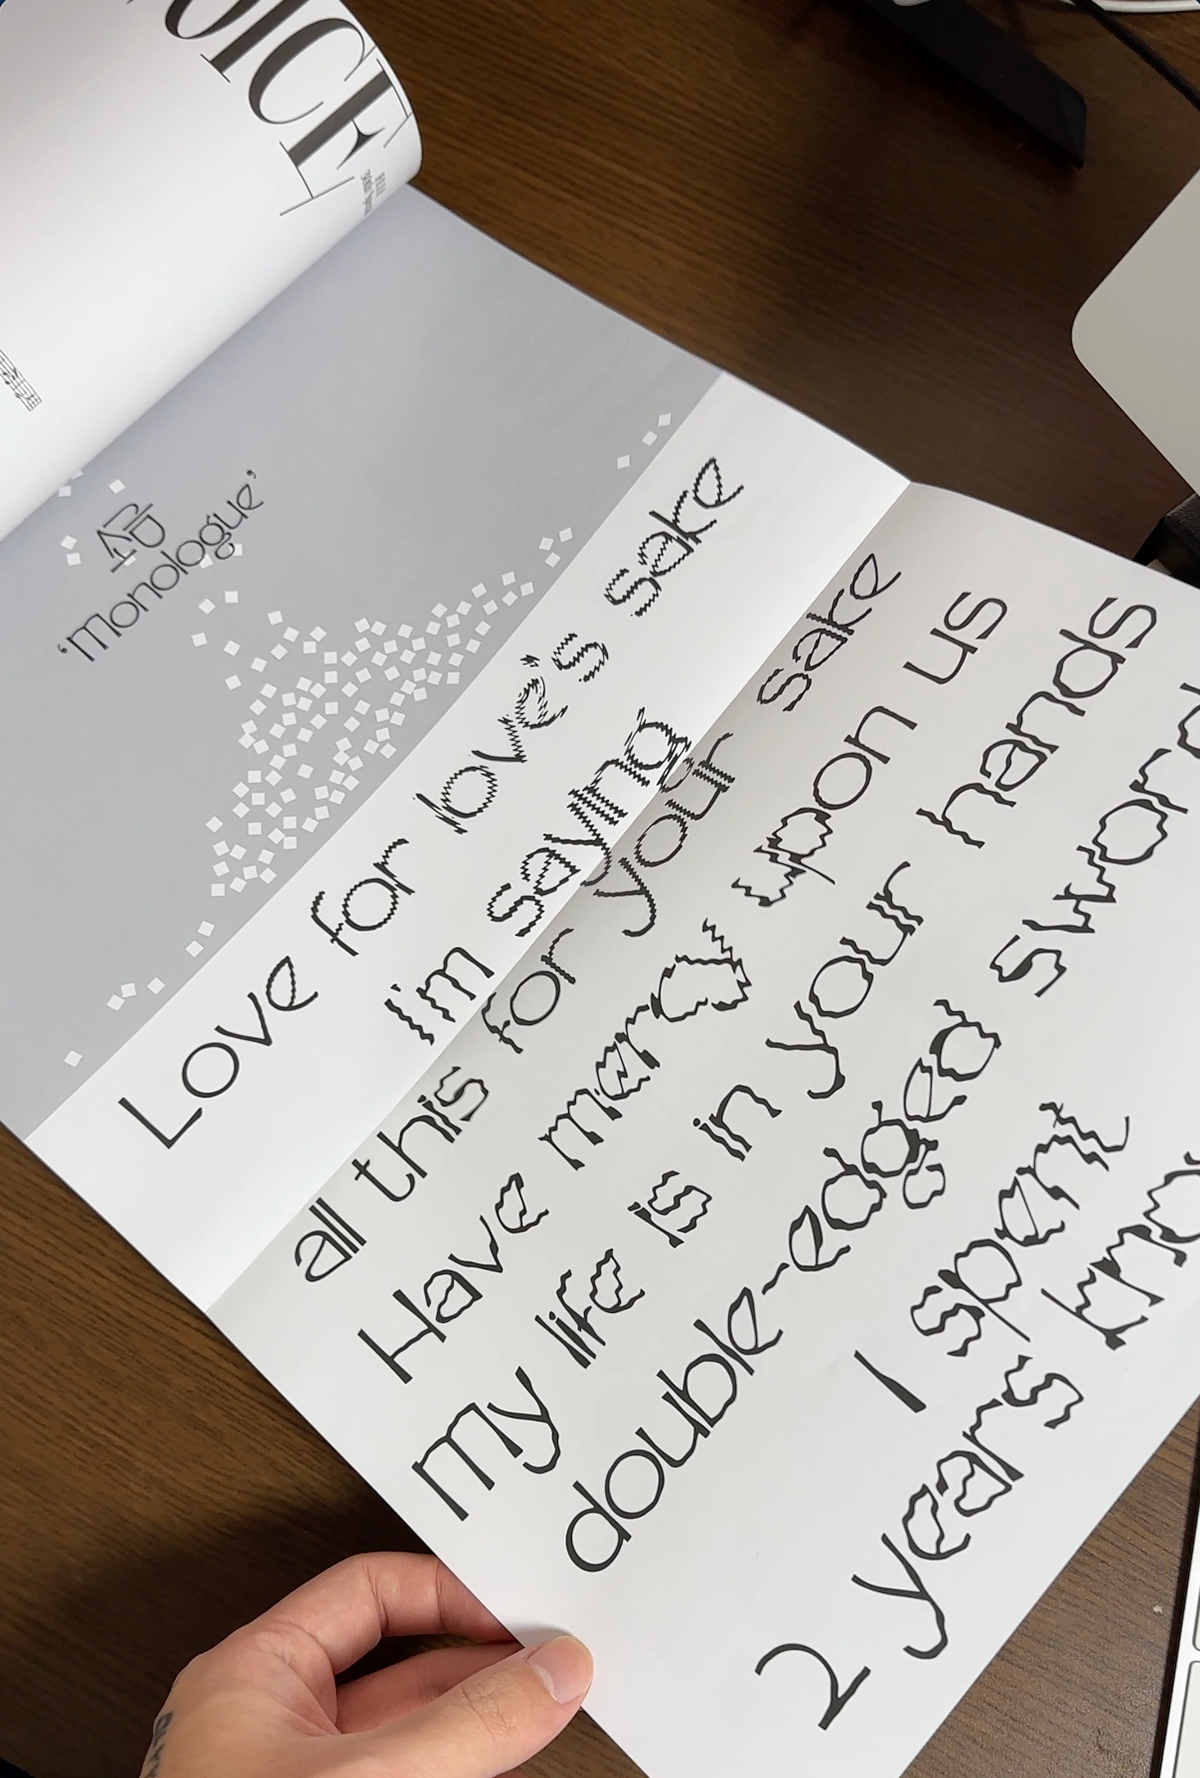 OICE
'Monologue'
Love for love's sake
I'm saying
all this for your sake
Have mercy upon us
my life is in your hands
double-edged sword
I spent
2 years